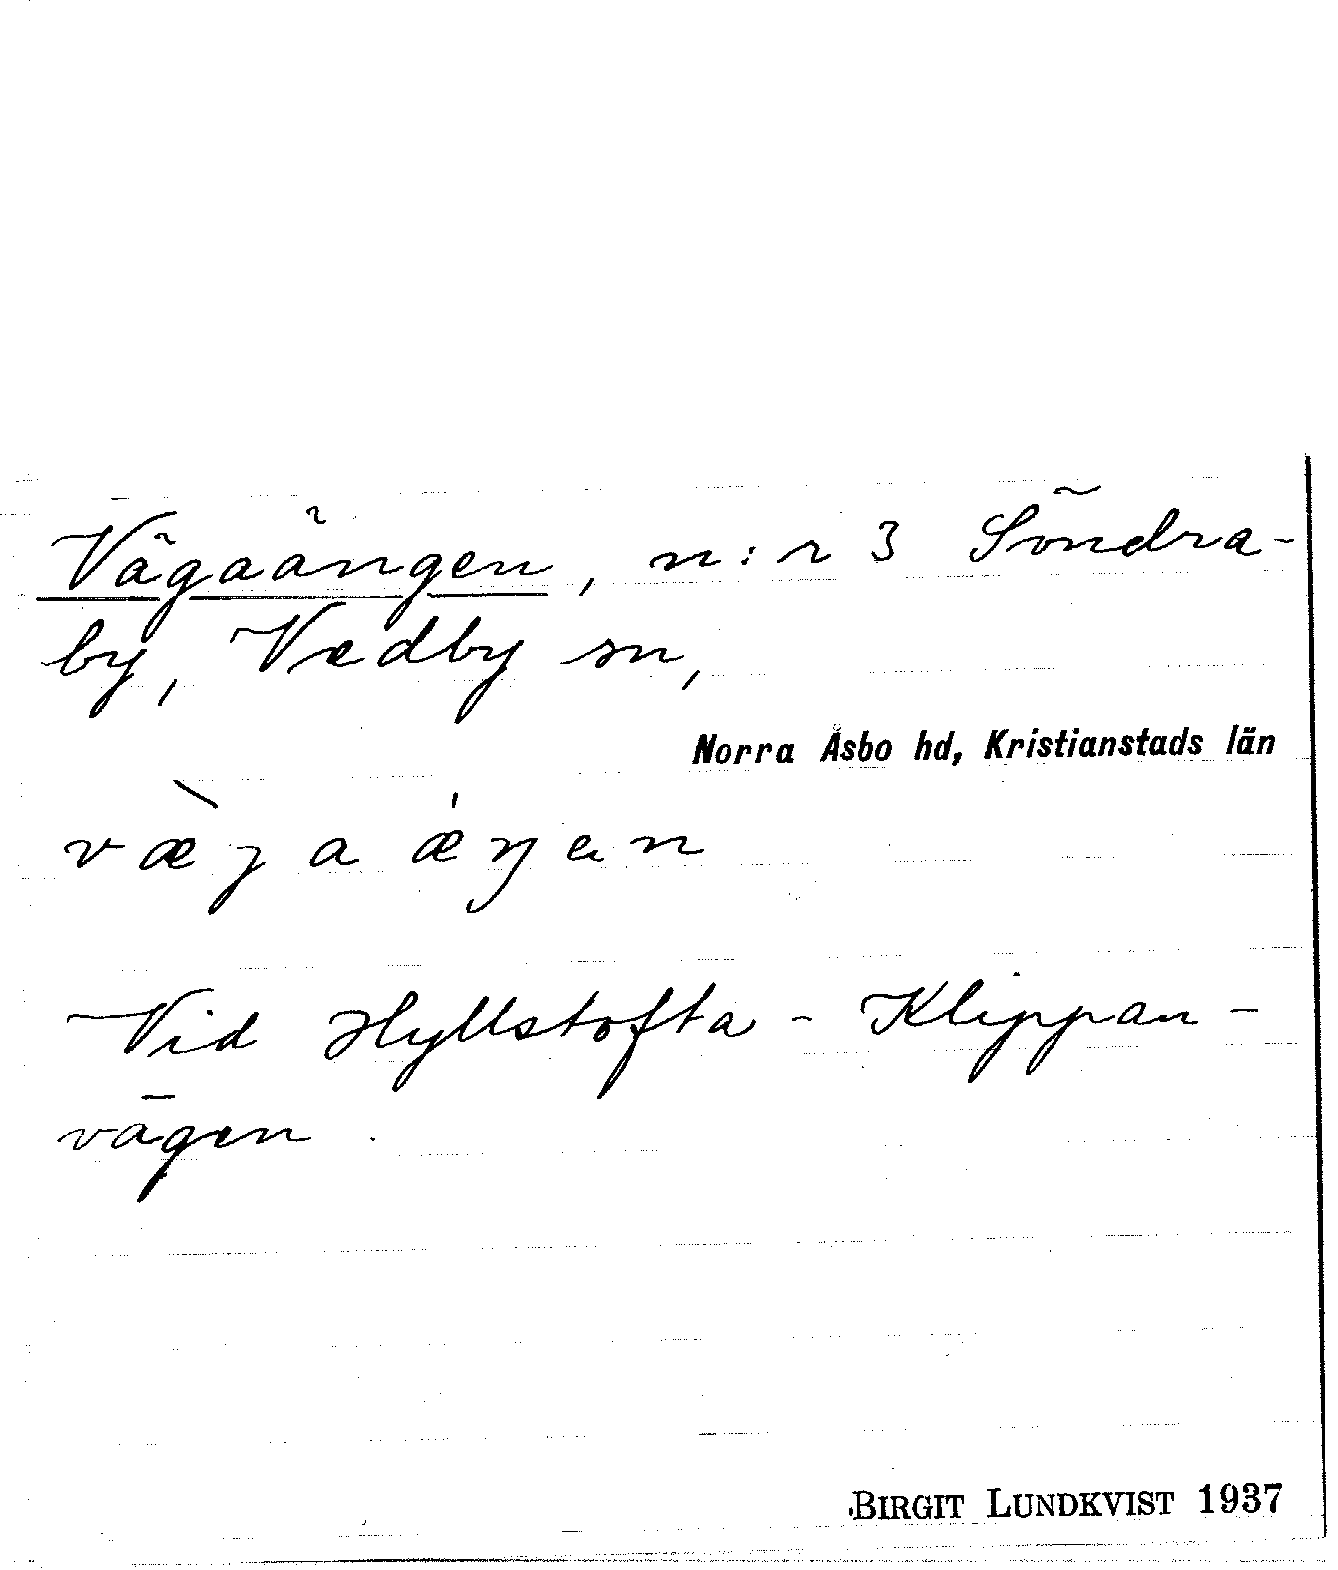 Vägaängen, n:r 3 Söndra-
by, Vedby sn,
Norra Åsbo hd, Kristianstads län
væ̀ʒa ǽŋen
Vid Hyllstofta - Klippan-
vägen.
BIRGIT LUNDKVIST 1937